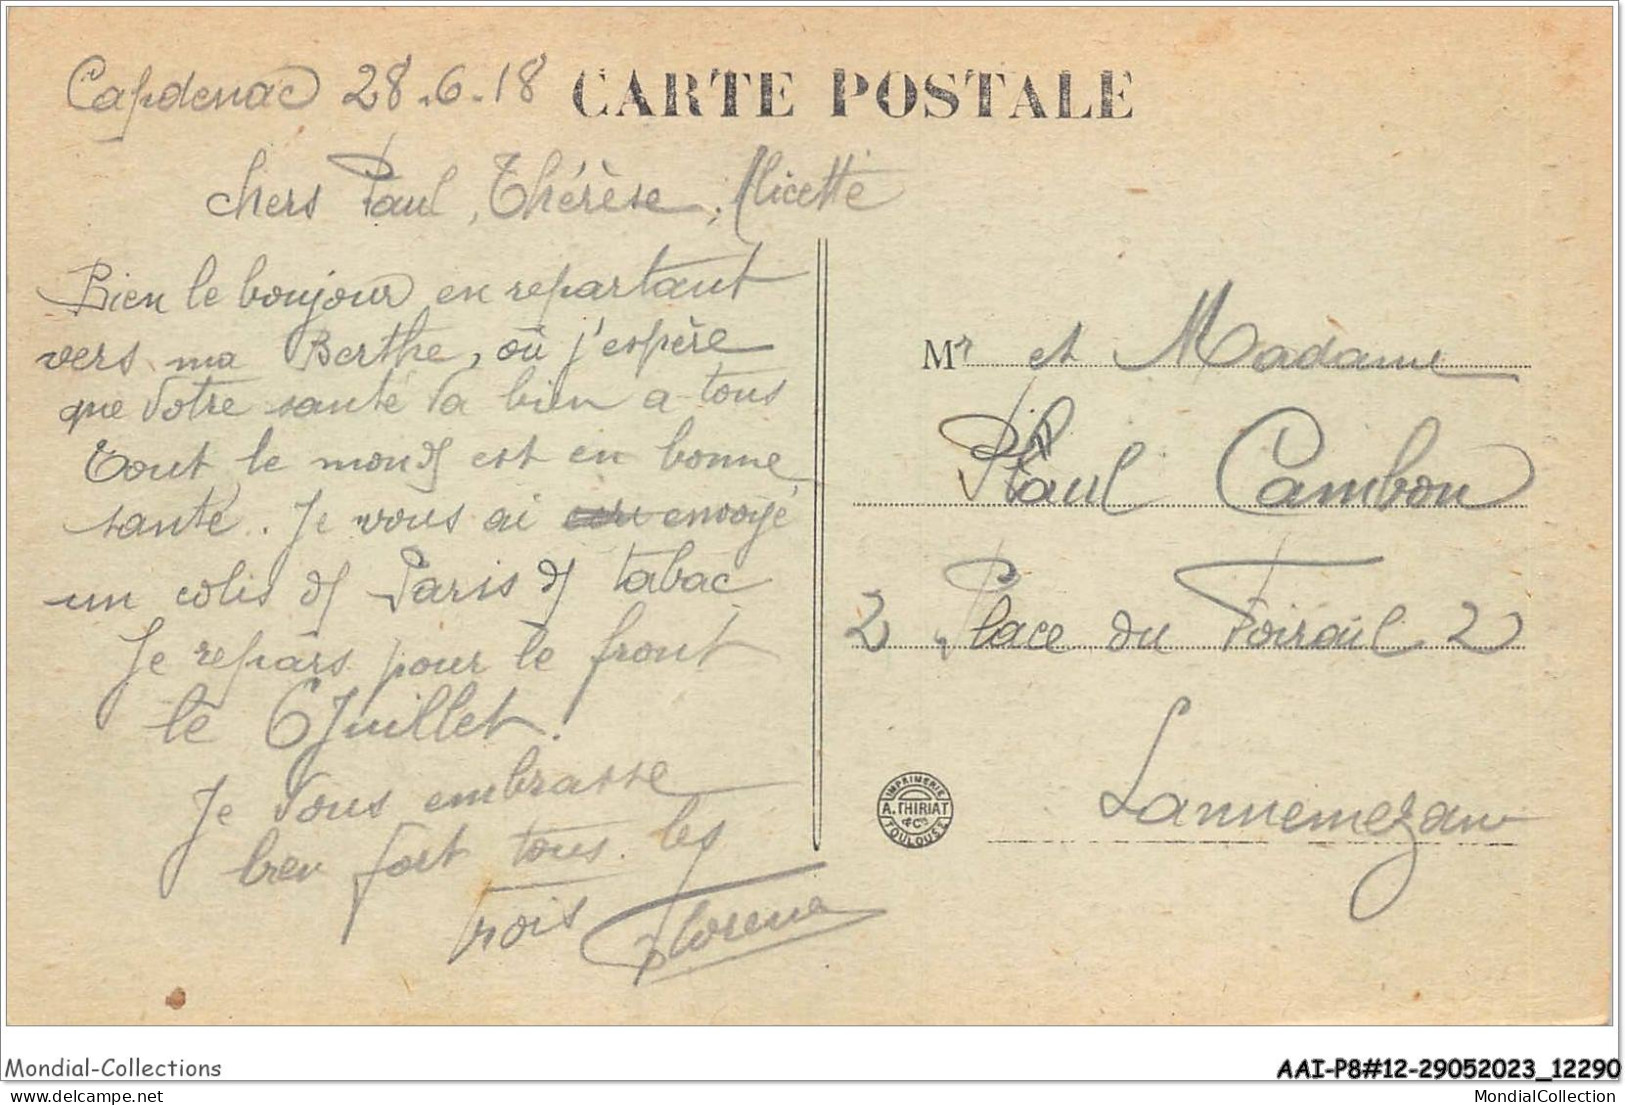 Capdenac 28.6.18 CARTE POSTALE
chers Paul, Thérèse, Alicette
Bien le boujour en repartant
vers ma Berthe, où j'espère
que votre santé va bien a tous
Tout le monde est en bonne
santé. Je vous ai envoyé
un colis de Paris de tabac
Je repars pour le front
le 6 Juillet.
Je vous embrasse
bien fort tous les
trois
Mr et Madame
Paul Cambon
2 Place du Foirail 2
Lannemezan
IMPRIMERIE
A. THIRIAT
& Cie
TOULOUSE
Mondial-Collections
AAI-P8#12-29052023_12290
delcampe.net
MondialCollection